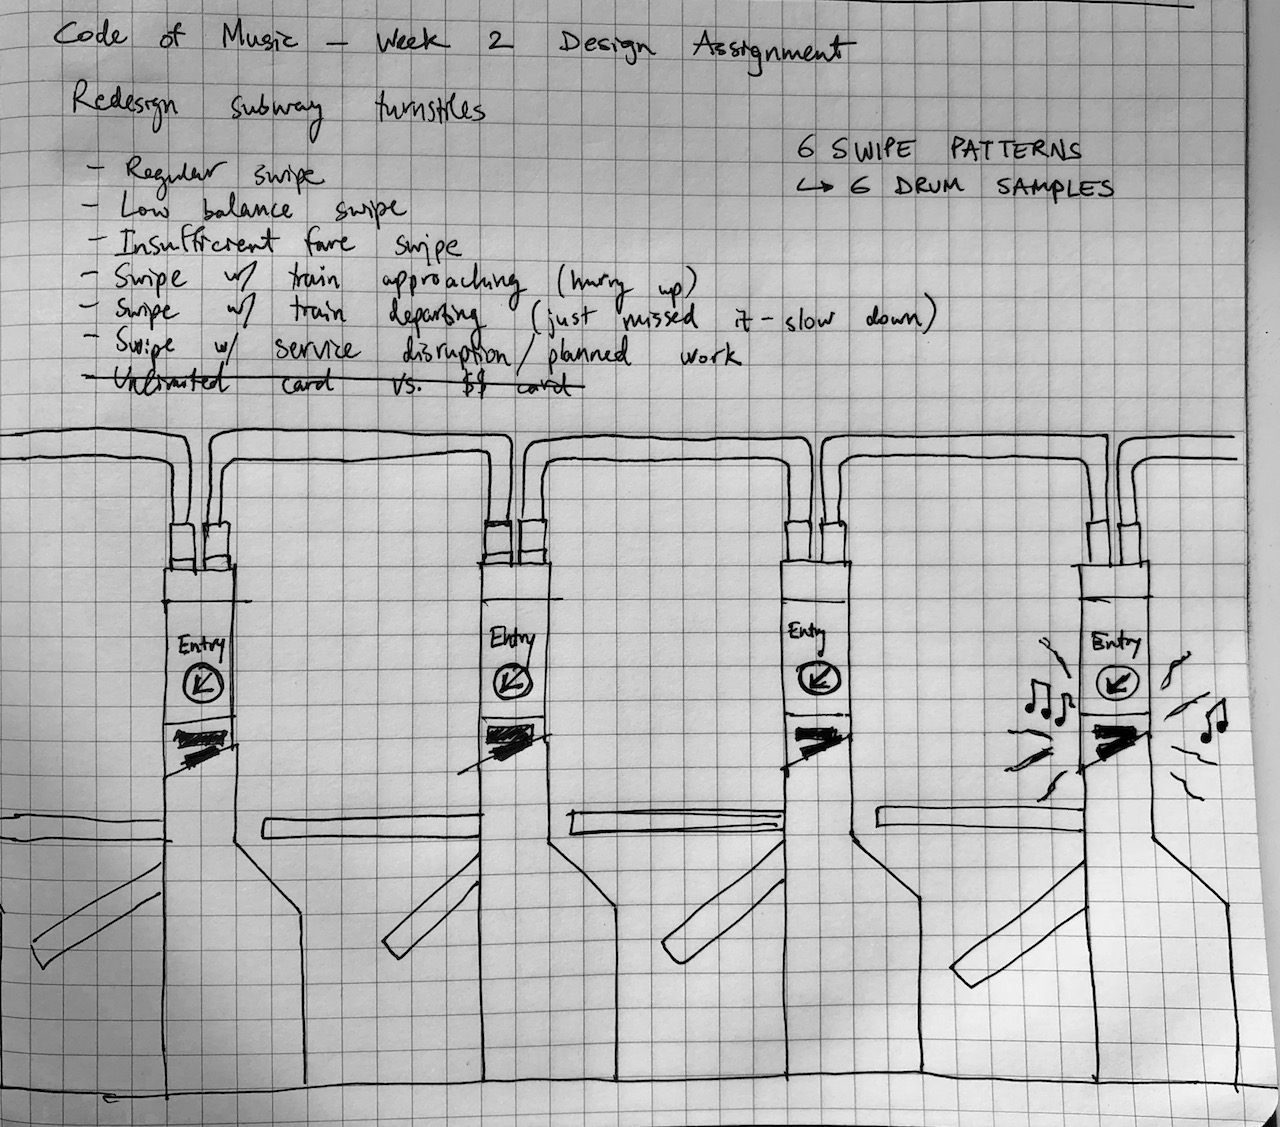 Code of Music - Week 2 Design Assignment
Redesign subway turnstiles
6 SWIPE PATTERNS
↳ 6 DRUM SAMPLES
- Regular swipe
- Low balance swipe
- Insufficient fare swipe
- Swipe w/ train approaching (hurry up)
- Swipe w/ train departing (just missed it - slow down)
- Swipe w/ service disruption / planned work
- Unlimited card vs. $$ card
Entry
Entry
Entry
Entry